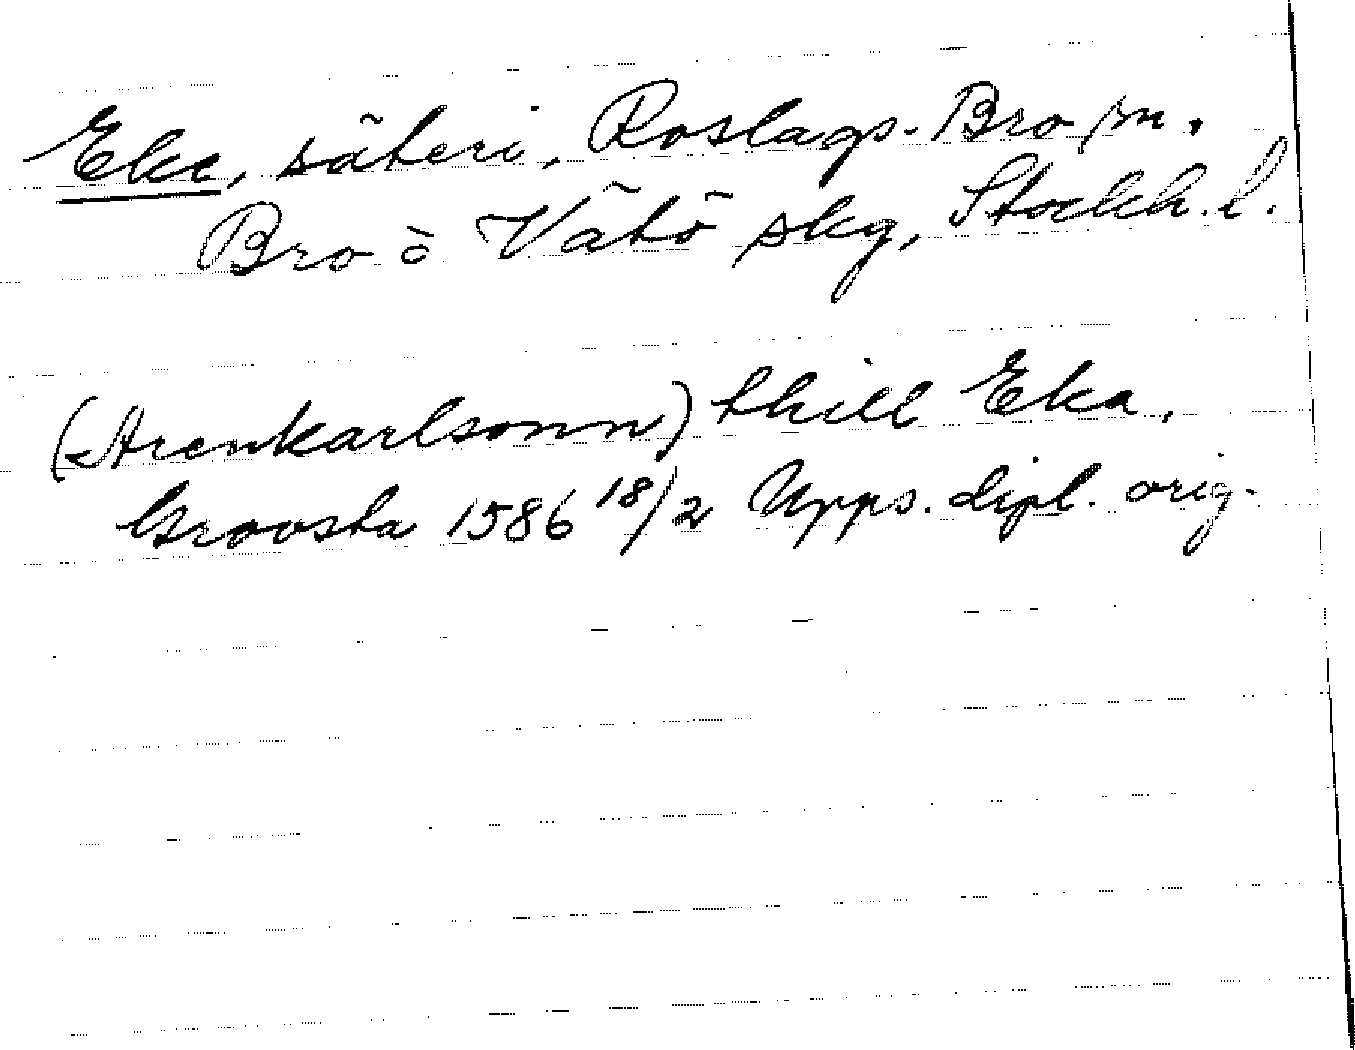 Eke, säteri, Roslags-Bro sn.
Bro o Vätö skg, Stockh. l.
(Arenkarlsonn) thill Eka.
Groosta 1586 18/2 Upps. dipl. orig.